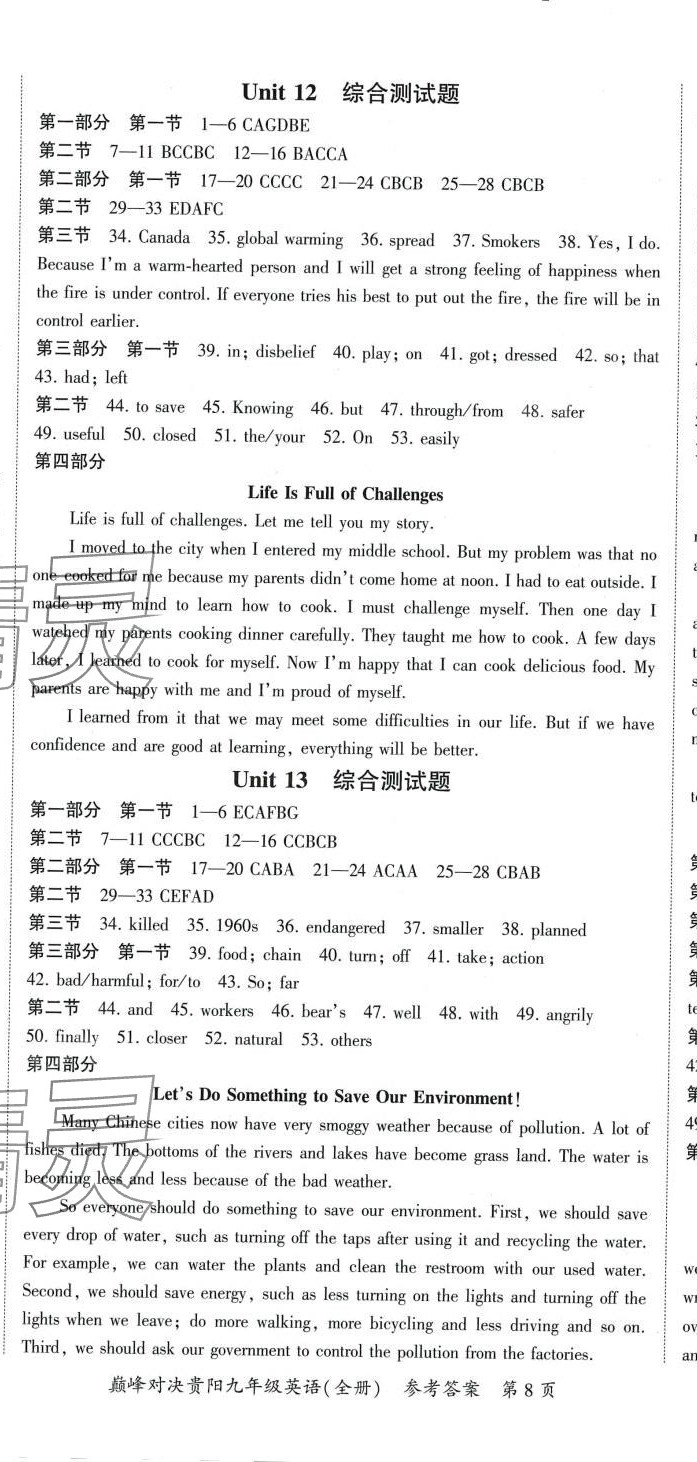 Unit 12 综合测试题
第一部分 第一节 1—6 CAGDBE
第二节 7—11 BCCBC 12—16 BACCA
第二部分 第一节 17—20 CCCC 21—24 CBCB 25—28 CBCB
第二节 29—33 EDAFC
第三节 34. Canada 35. global warming 36. spread 37. Smokers 38. Yes, I do.
Because I'm a warm-hearted person and I will get a strong feeling of happiness when
the fire is under control. If everyone tries his best to put out the fire, the fire will be in
control earlier.
第三部分 第一节 39. in; disbelief 40. play; on 41. got; dressed 42. so; that
43. had; left
第二节 44. to save 45. Knowing 46. but 47. through/from 48. safer
49. useful 50. closed 51. the/your 52. On 53. easily
第四部分
Life Is Full of Challenges
Life is full of challenges. Let me tell you my story.
I moved to the city when I entered my middle school. But my problem was that no
one cooked for me because my parents didn't come home at noon. I had to eat outside. I
made up my mind to learn how to cook. I must challenge myself. Then one day I
watched my parents cooking dinner carefully. They taught me how to cook. A few days
later, I learned to cook for myself. Now I'm happy that I can cook delicious food. My
parents are happy with me and I'm proud of myself.
I learned from it that we may meet some difficulties in our life. But if we have
confidence and are good at learning, everything will be better.
Unit 13 综合测试题
第一部分 第一节 1—6 ECAFBG
第二节 7—11 CCCBC 12—16 CCBCB
第二部分 第一节 17—20 CABA 21—24 ACAA 25—28 CBAB
第二节 29—33 CEFAD
第三节 34. killed 35. 1960s 36. endangered 37. smaller 38. planned
第三部分 第一节 39. food; chain 40. turn; off 41. take; action
42. bad/harmful; for/to 43. So; far
第二节 44. and 45. workers 46. bear's 47. well 48. with 49. angrily
50. finally 51. closer 52. natural 53. others
第四部分
Let's Do Something to Save Our Environment!
Many Chinese cities now have very smoggy weather because of pollution. A lot of
fishes died. The bottoms of the rivers and lakes have become grass land. The water is
becoming less and less because of the bad weather.
So everyone should do something to save our environment. First, we should save
every drop of water, such as turning off the taps after using it and recycling the water.
For example, we can water the plants and clean the restroom with our used water.
Second, we should save energy, such as less turning on the lights and turning off the
lights when we leave; do more walking, more bicycling and less driving and so on.
Third, we should ask our government to control the pollution from the factories.
巅峰对决贵阳九年级英语(全册) 参考答案 第 8 页